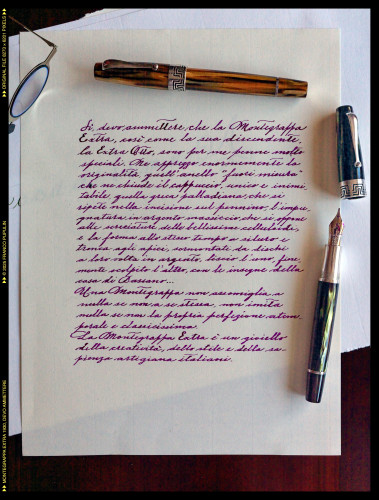 Sì, devo ammettere, che la Montegrappa
Extra, così come la sua discendente
la Extra Otto, sono per me penne molto
speciali. Ne apprezzo enormemente la
originalità, quell'anello "fuori misura"
che ne chiude il cappuccio, unico e inimi
tabile, quella greca palladiana, che si
ripete nella sezione sul pennino, l'impu
gnatura in argento massiccio, che si oppone
alle screziature delle bellissime celluloidi,
e la forma allo stesso tempo a siluro e
tronca agli apici, sormontata da dischi
a loro volta in argento, liscio l'uno, fine
mente scolpito l'altro, con le insegne della
casa di Bassano...
Una Montegrappa non assomiglia a
nulla se non a se stessa, non imita
nulla se non la propria perfezione atem
porale e classicissima.
La Montegrappa Extra è un gioiello
della creatività, dello stile e della sa
pienza artigiana italiani.
MONTEGRAPPA EXTRA 1930, DEVO AMMETTERE
© 2025 FRANCO PUPULIN